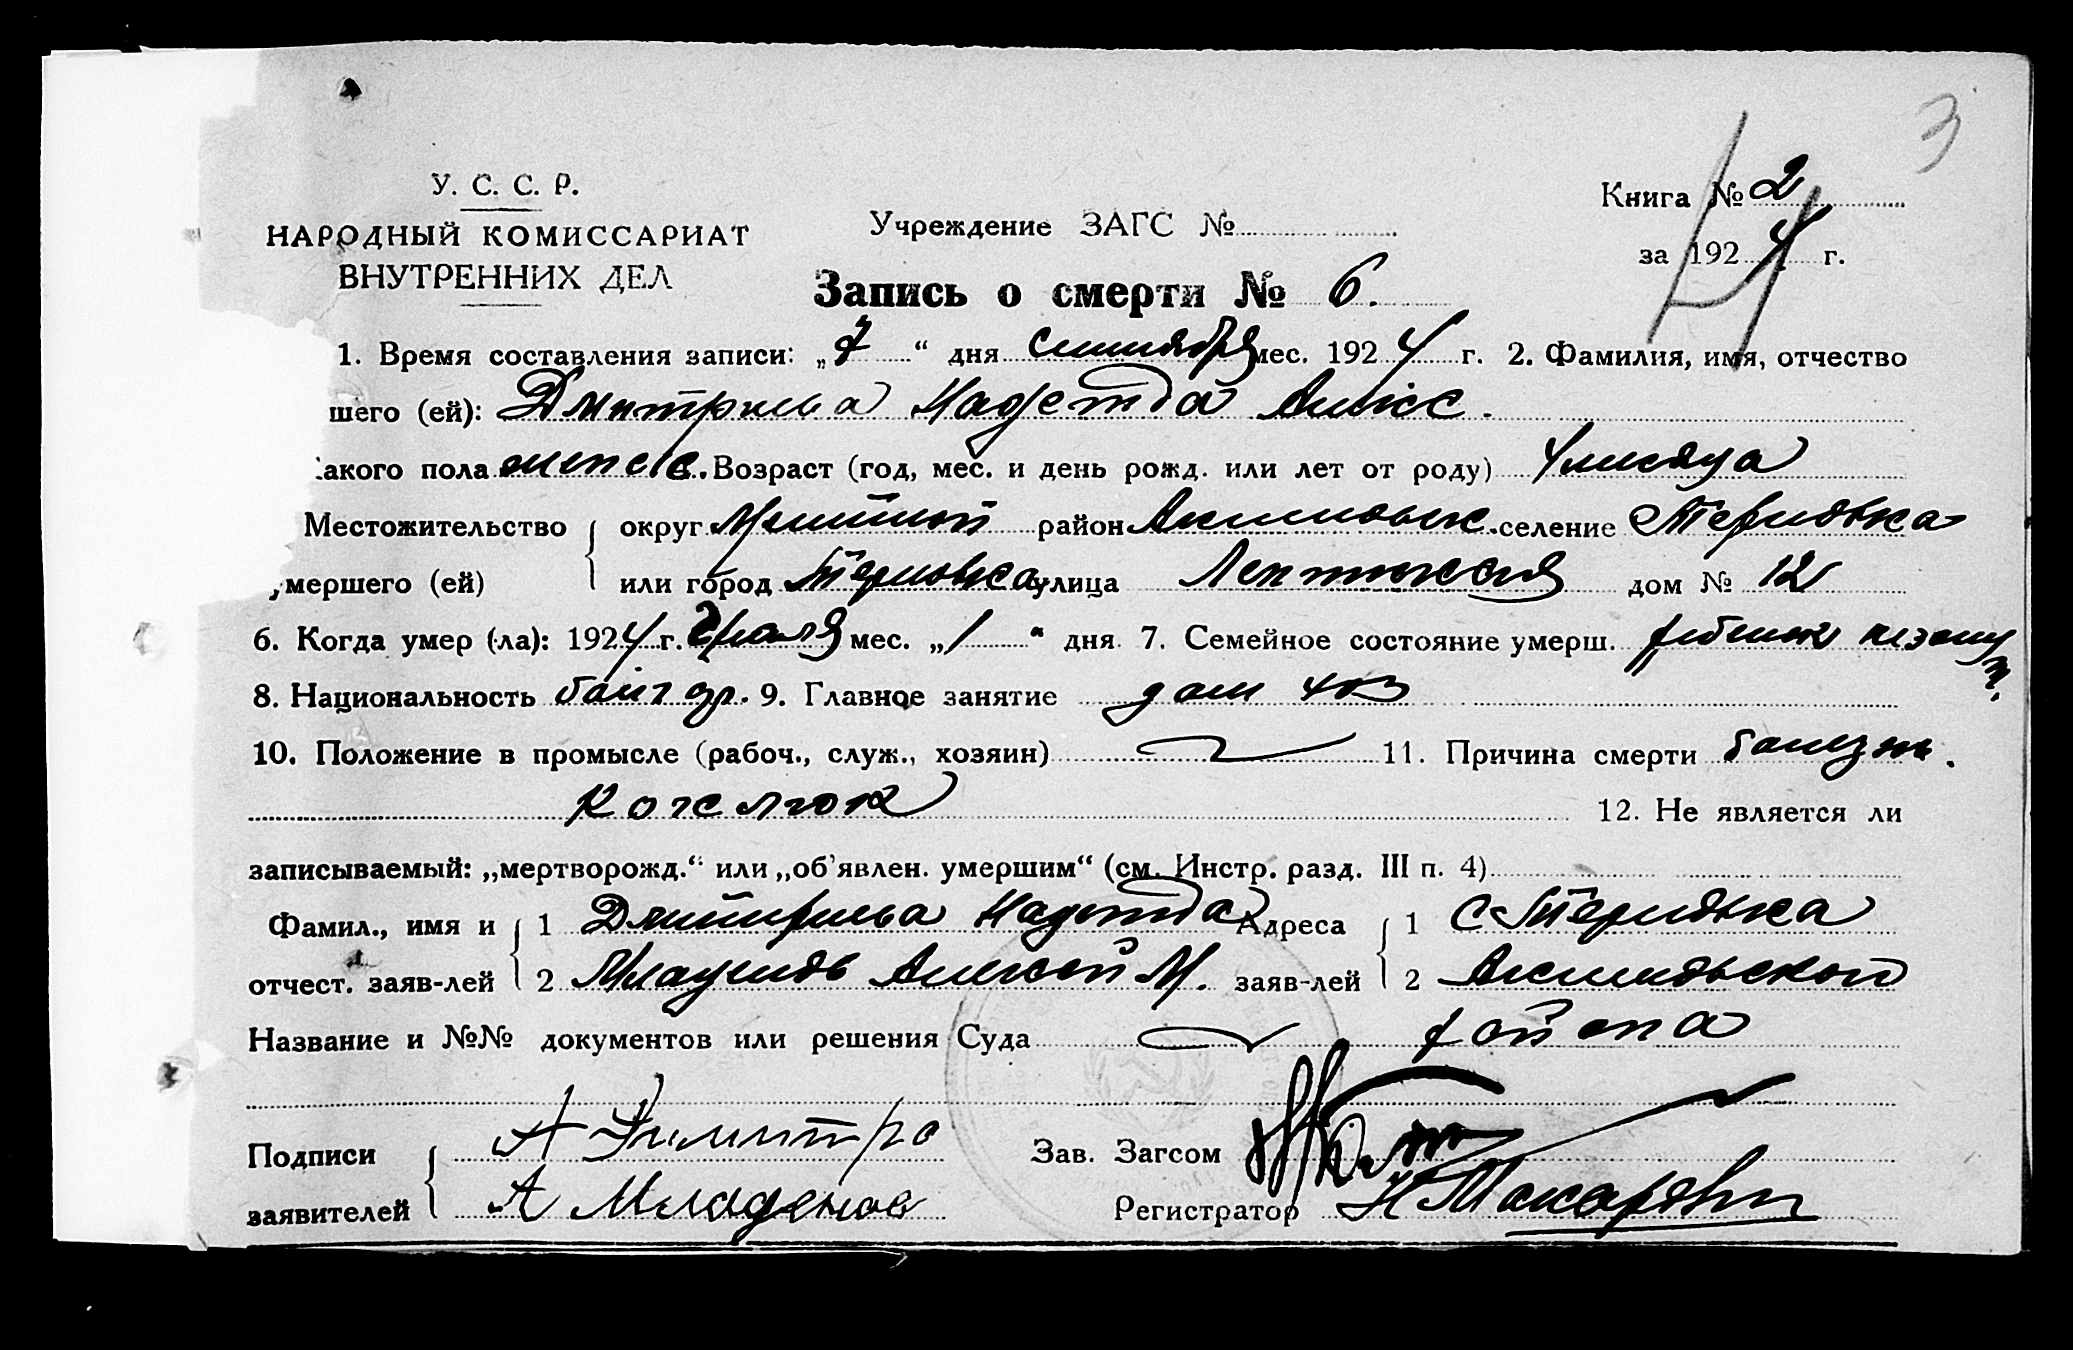 3
У. С. С. Р.
НАРОДНЫЙ КОМИССАРИАТ
ВНУТРЕННИХ ДЕЛ
Учреждение ЗАГС №
Книга № 2
за 1924 г.
Запись о смерти № 6.
1. Время составления записи: „7“ дня сентября мес. 1924 г. 2. Фамилия, имя, отчество
шего (ей): Дмитриева Надежда Алекс.
акого пола женск. Возраст (год, мес. и день рожд. или лет от роду) 4 месяца
Местожительство округ район Акимовск. селение Терновка
умершего (ей) или город Терновка улица дом № 12
6. Когда умер (-ла): 1924 г. мес. „1“ дня. 7. Семейное состояние умерш. ребенок
8. Национальность болгар. 9. Главное занятие дом хоз
10. Положение в промысле (рабоч., служ., хозяин) 11. Причина смерти болезнь.
Коклюк
12. Не является ли
записываемый: „мертворожд.“ или „об'явлен. умершим“ (см. Инстр. разд. III п. 4)
Фамил., имя и 1 Дмитриева Надежда Адреса 1 С Терновка
отчест. заяв-лей 2 Младенов Алексей М. заяв-лей 2 Акимовской
Название и №№ документов или решения Суда района
Подписи А Димитро Зав. Загсом
заявителей А Младенов Регистратор Н Макаревич